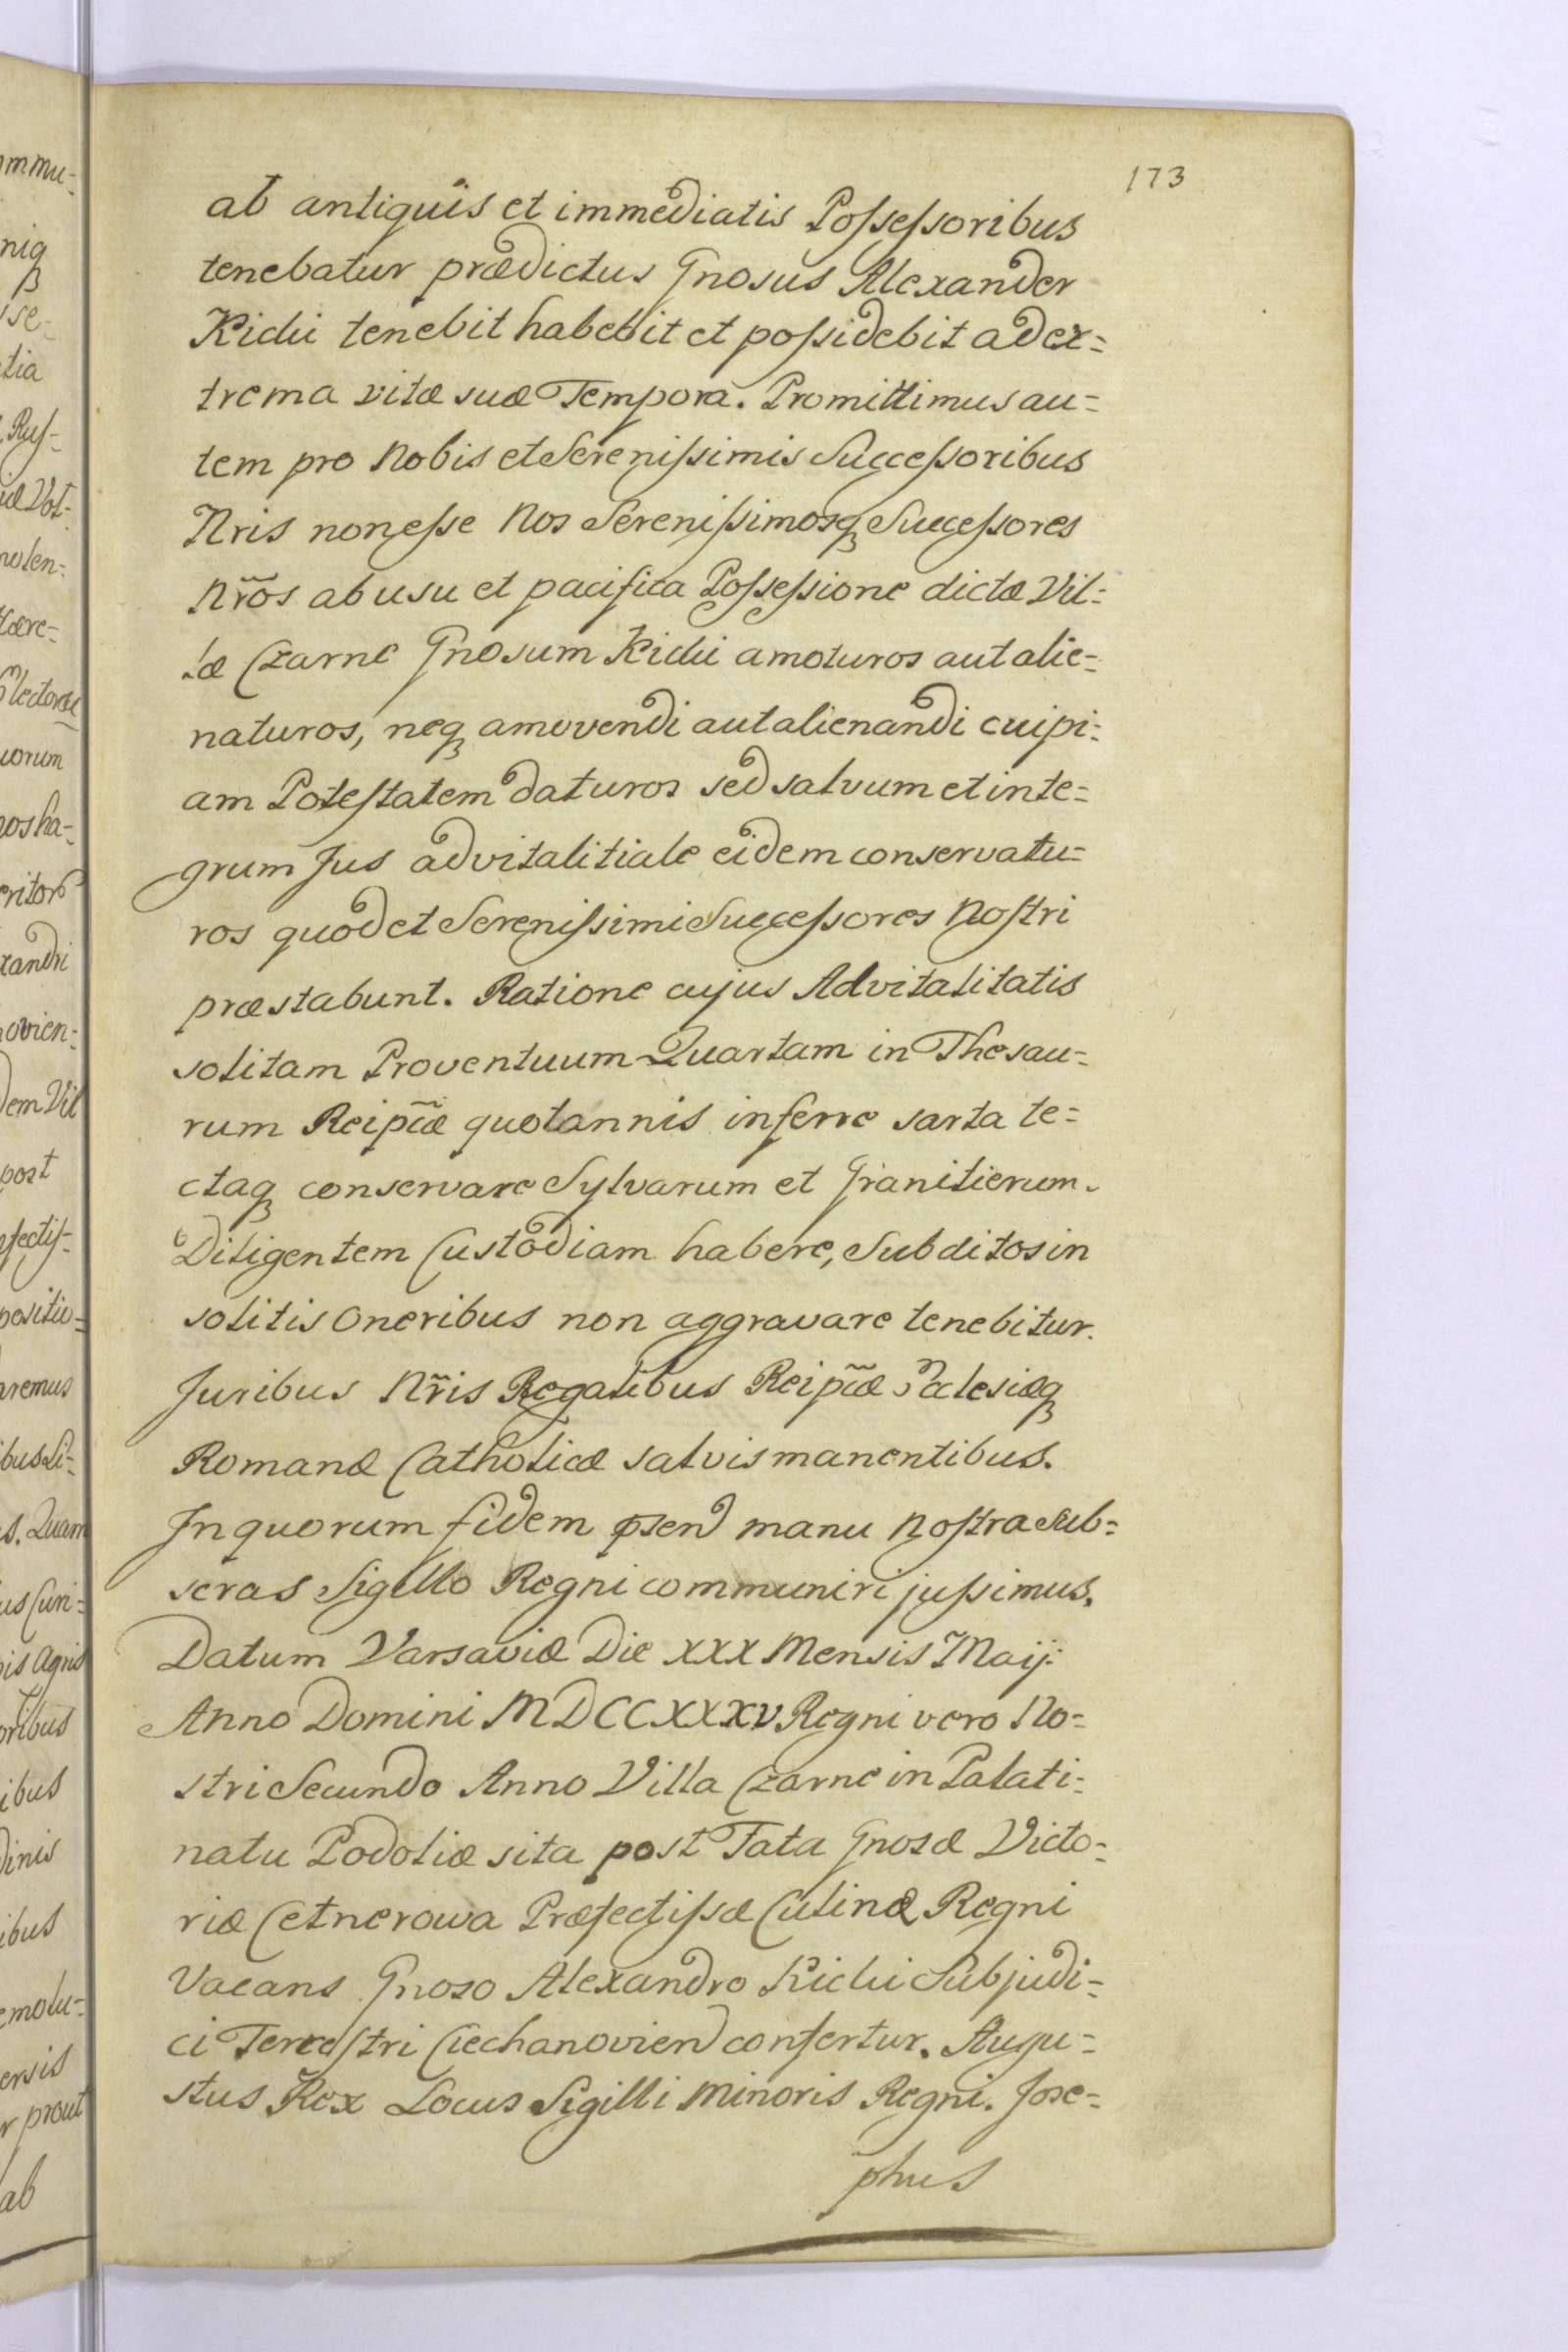 173
ab antiquis et immediatis Poſseſsoribus
tenebatur prædictus Gnosus Alexander
Kicki tenebit habebit et poſsidebit ad ex=
trema vitæ suæ Tempora. Promittimus au=
tem pro Nobis et Sereniſsimis Succeſsoribus
Nris non eſse Nos Sereniſsimosq Succeſsores
Nr̃os ab usu et pacifica Poſseſsione dictæ Vil=
læ Czarne Gnosum Kicki amoturos aut alie=
naturos, neq amovendi aut alienandi cuipi=
am Poteſtatem daturos sed salvum et inte=
grum Jus advitalitiale eidem conservatu=
ros quod et Sereniſsimi Succeſsores Noſtri
præstabunt. Ratione cujus Advitalitatis
solitam Proventuum Quartam in Thesau=
rum Reip̃cæ quotannis inferre sarta te=
ctaq conservare Sylvarum et Granitierum
Diligentem Custodiam habere, Subditos in
solitis Oneribus non aggravare tenebitur.
Juribus Nr̃is Regalibus Reip̃cæ Ecclesiæq
Romanæ Catholicæ salvis manentibus.
In quorum fidem psen manu Noſtra sub=
scras Sigillo Regni communiri juſsimus.
Datum Varsaviæ Die XXX Mensis Maij
Anno Domini MDCCXXXV Regni vero No=
stri Secundo Anno Villa Czarne in Palati=
natu Podoliæ sita post Fata Gnosæ Victo=
riæ Cetnerowa Præfectiſsæ Culinæ Regni
Vacans Gnoso Alexandro Kicki Subjudi=
ci Terreſtri Ciechanovien confertur. Augu=
stus Rex Locus Sigilli Minoris Regni. Jose=
phus